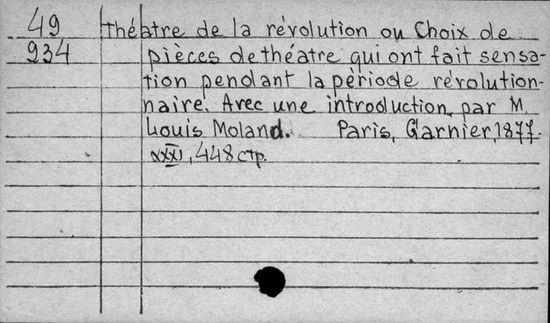 49 Théatre de la révolution ou Choix de
934 pièces de théatre qui ont fait sensa-
tion pendant la période révolution-
naire. Avec une introduction par M
Louis Moland. Paris, Garnier, 1877.
XXXI, 448 стр.